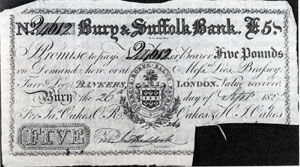 No. 21612 Bury & Suffolk Bank. £5
I Promise to pay 21612 or Bearer Five Pounds
on Demand, here, or at Messrs.
BANKERS, LONDON. Value received
Bury the 26 day of Sept 182
For Jas. Oakes & R. Oakes & H. J. Oakes
FIVE